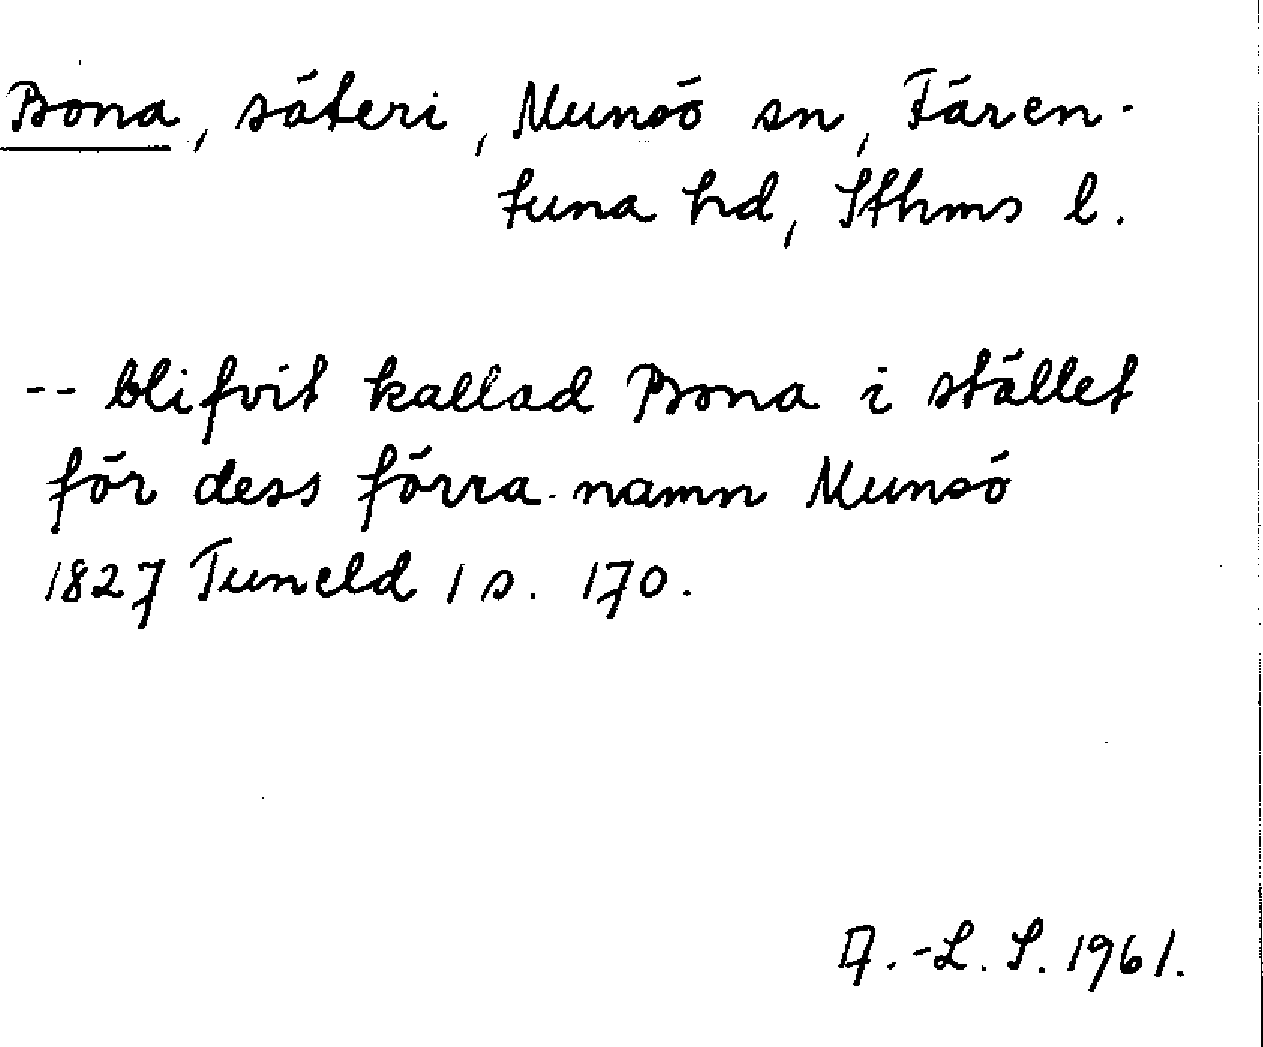 Bona, säteri, Munsö sn, Fären-
tuna hd, Sthms l.
-- blifvit kallad Bona i stället
för dess förra namn Munsö
1827 Tuneld 1 s. 170.
A.-L. S. 1961.